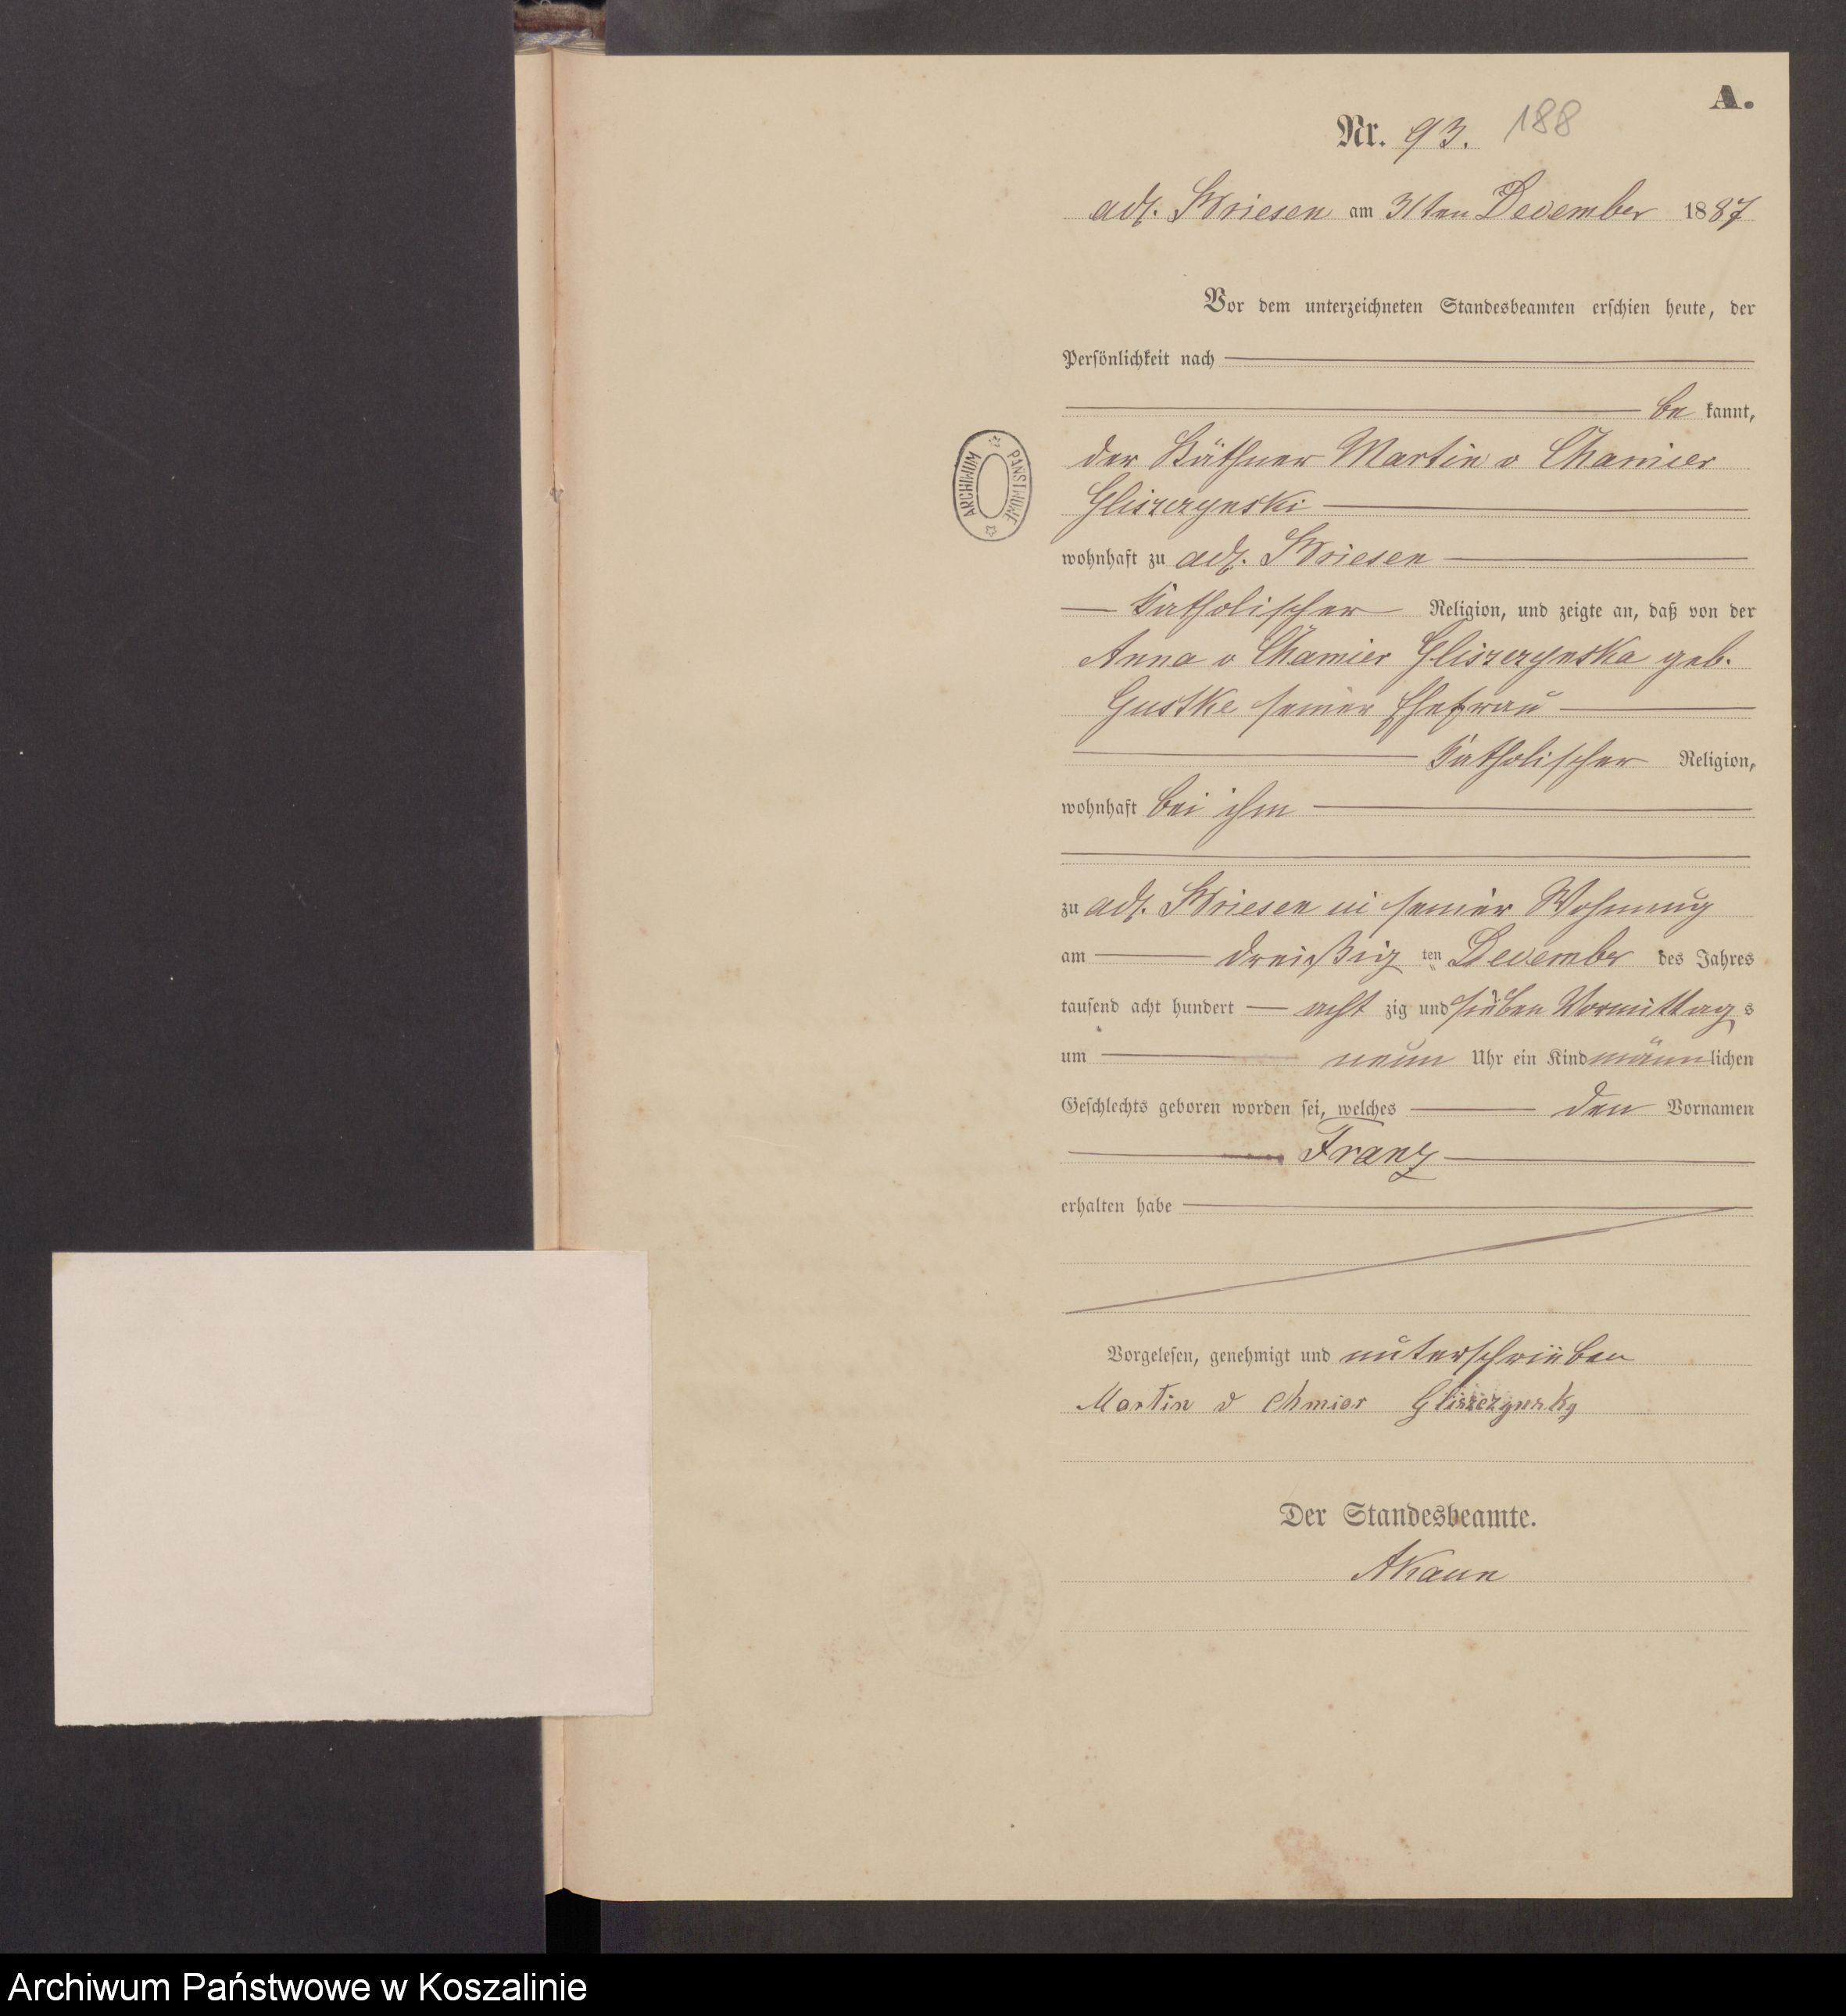 A.
Nr. 93. 188
adl. Briesen am 31ten December 1887
Vor dem unterzeichneten Standesbeamten erschien heute, der
Persönlichkeit nach
be kannt,
der Käthner Martin v Chamier
Gliszczynski
wohnhaft zu adl. Briesen
Katholischer Religion, und zeigte an, daß von der
Anna v Chamier Gliszczynska geb.
Gustke seiner Ehefrau
Katholischer Religion,
wohnhaft bei ihm
zu adl. Briesen in seiner Wohnung
am dreißig ten December des Jahres
tausend acht hundert acht zig und sieben Vormittag s
um neun Uhr ein Kind männ lichen
Geschlechts geboren worden sei, welches den Vornamen
Franz
erhalten habe
Vorgelesen, genehmigt und unterschrieben
Martin v Chmier Gliszczynsky
Der Standesbeamte.
ARCHIWUM PAŃSTWOWE
Archiwum Państwowe w Koszalinie